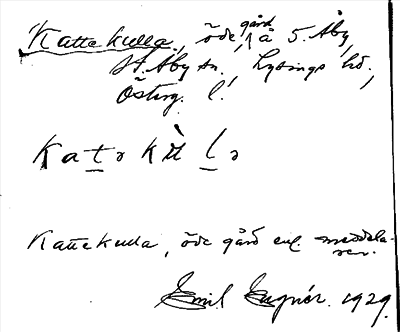 Kattekulla, öde gård å S. Åby,
St. Åby sn., Lysings hd.,
Österg. l.
Katə kùlə
Kattekulla, öde gård enl. meddela-
ren.
Emil Engnér. 1929.